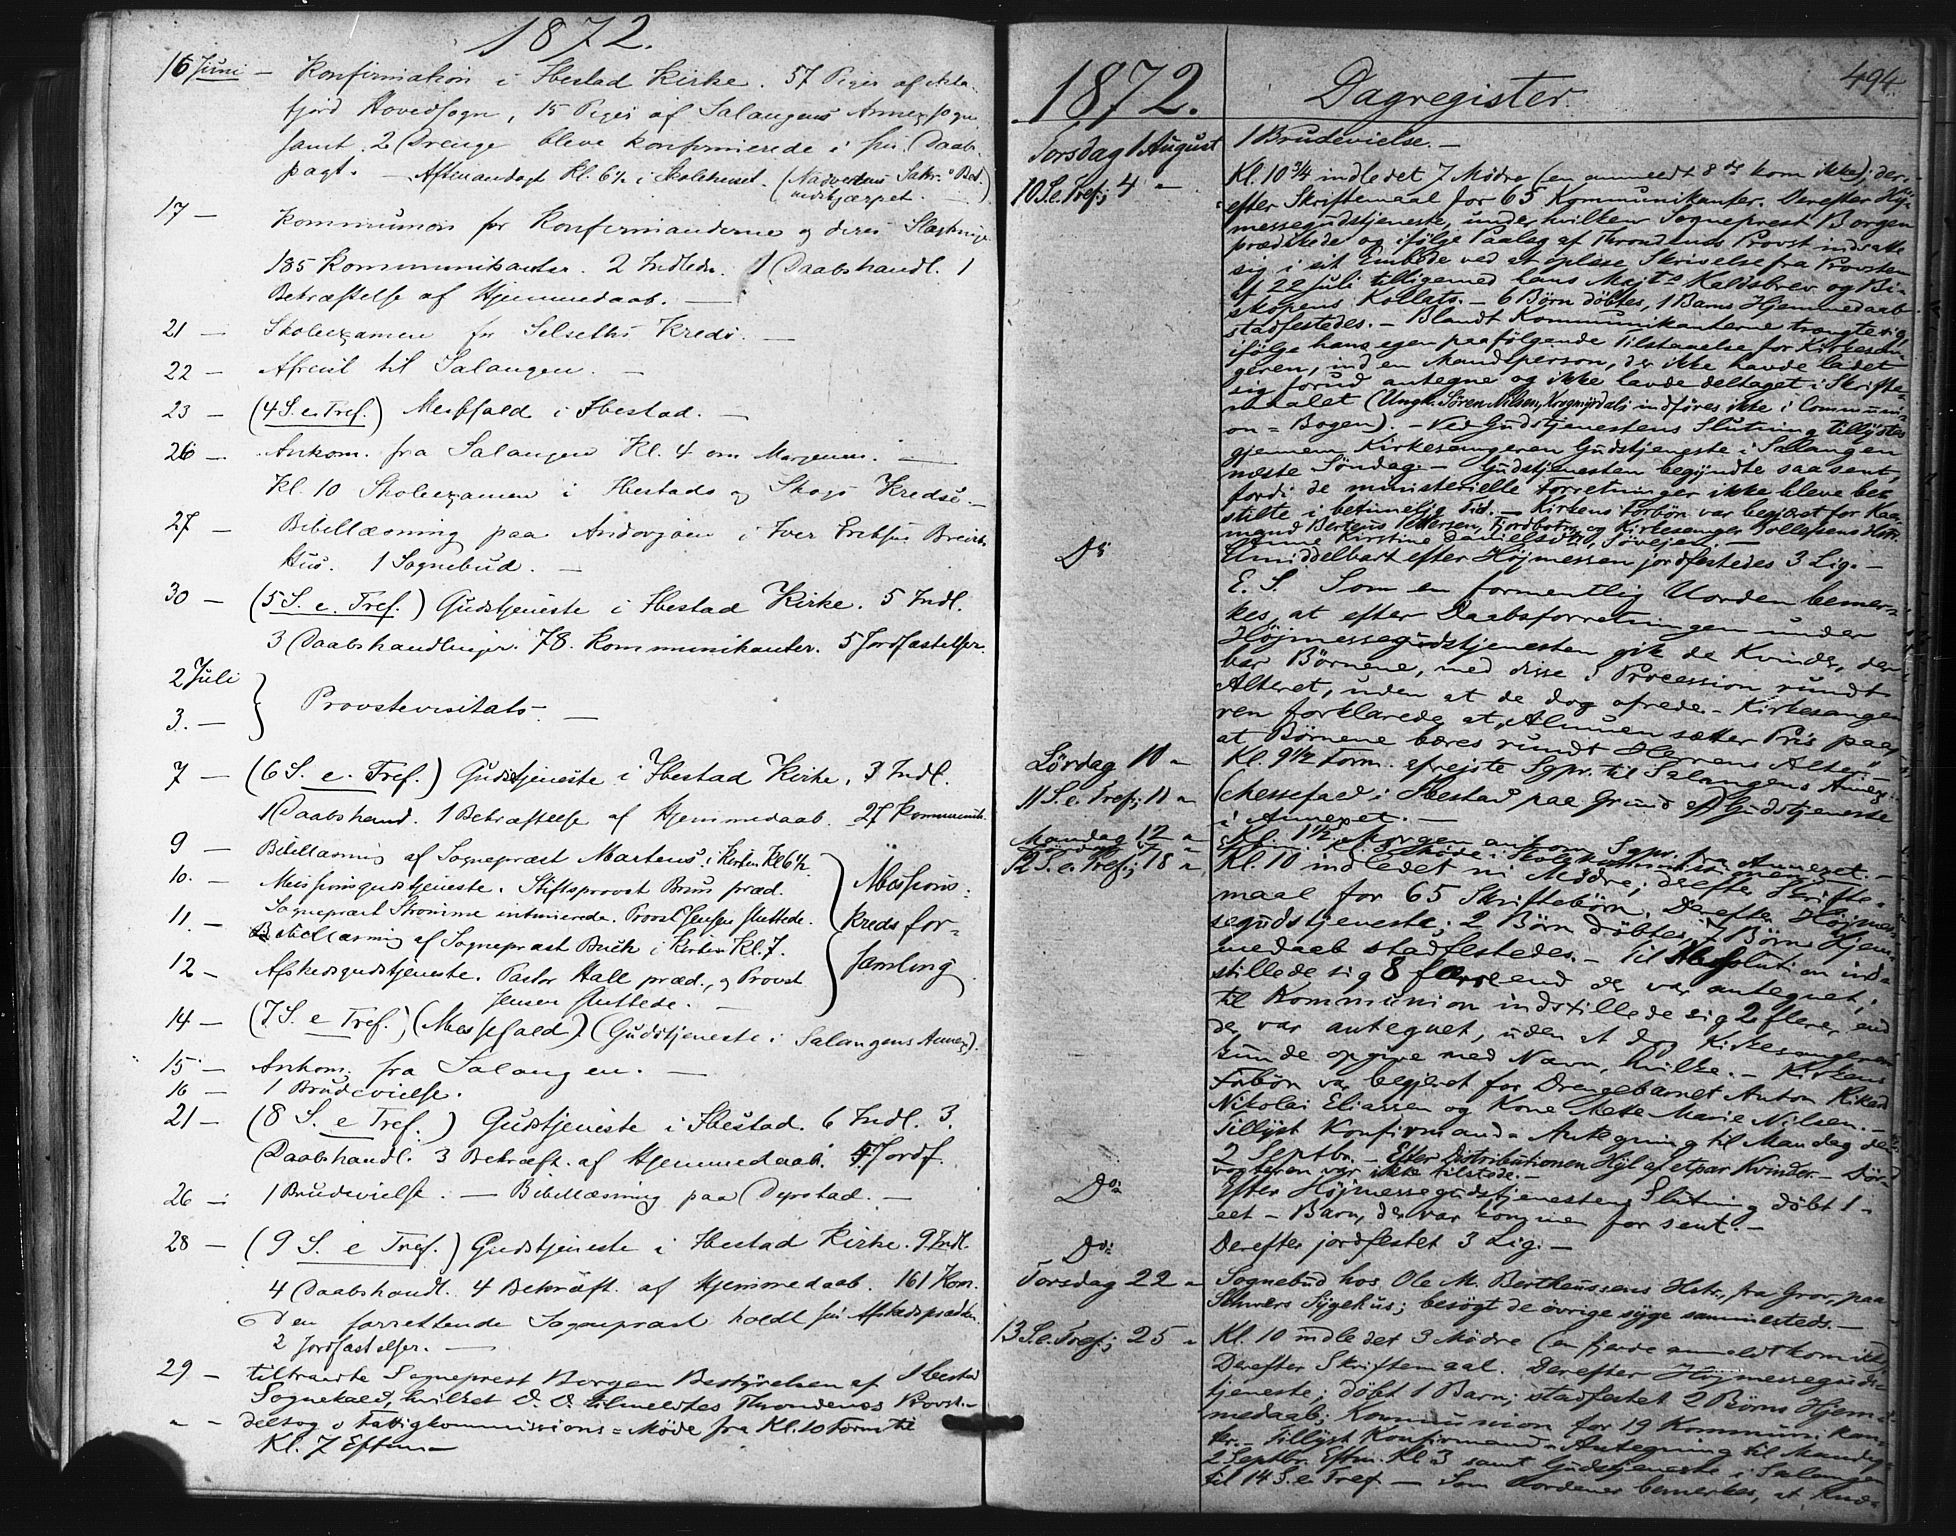 1872.
16 Juni – Konfirmation i Ibestad Kirke. 57 Piger af Asta-
fjord Hovedsogn, 15 Piger af Salangens Annexsogn
samt 2 Drenge bleve konfirmerede i sin Daabs-
pagt. – Aftenandagt Kl. 6½ i Skolehuset. (Nadverens Sakr. Bet.
indskjærpet.)
17 – Kommunion for Konfirmanderne og deres Slægtninge
185 Kommunikanter. 2 Indledn. 1 Daabshandl. 1
Bekræftelse af Hjemmedaab. –
21 – Skoleexamen for Selseths Kreds. –
22 – Afreist til Salangen. –
23 – (4 S. e. Tref.) Messfald i Ibestad. –
26 – Ankom. fra Salangen Kl. 4 om Morgenen. –
Kl. 10 Skoleexamen i Ibestads og Skogs Kredse. –
27 – Bibellæsning paa Andorjaen i Iver Eriksens
Hus. 1 Sognebud. –
30 – (5 S. e. Tref.) Gudstjeneste i Ibestad Kirke. 5 Indl.
3 Daabshandlinger. 78 Kommunikanter. 5 Jordfæstelser.
2 Juli
3. – Provstevisitats. –
7 – (6 S. e. Tref.) Gudstjeneste i Ibestad Kirke. 3 Indl.
1 Daabshand. 1 Bekræftelse af Hjemmedaab. 27 Kommunik.
9 – Bibellæsning af Sognepræst Martens i Kirken Kl 6½.
10. – Missionsgudstjeneste. Stiftsprovst Bruun præd.
11. – Sognepræst Strømme intimerede. Provst Jensen sluttede.
Bibellæsning af Sognepræst Buck i Kirken Kl. 7.
12 – Afskedsgudstjeneste. Pastor Hall præd., og Provst
Jensen sluttede. –
Missions-
kredsfor-
samling
14 – (7 S. e Tref.) (Messefald) (Gudstjeneste i Salangens Annex).
15 – Ankom. fra Salangen. –
16 – 1 Brudevielse.
21 – (8 S. e Tref.) Gudstjeneste i Ibestad. 6 Indl. 3.
Daabshandl. 3 Bekræft. af Hjemmedaab. 4 Jordf.
26 – 1 Brudevielse. – Bibellæsning paa Dyrstad. –
28 – (9 S. e Tref.) Gudstjeneste i Ibestad Kirke. 9 Indl.
4 Daabshandl. 4 Bekræft. af Hjemmedaab. 161 Kom.
Den forrettende Sognepræst holdt sin Afskedsprædik.
2 Jordfæstelser. –
29 – tiltraadte Sogneprest Borgen Bestyrelsen af Ibestad
Sognekald, hvilket D. D. tilmeldtes Throndenæs Provst. –
" – deltog i Fattigkommissions-Møde fra Kl. 10 Form til
Kl. 7 Efterm. –
1872. Dagregister. 494
Torsdag 1 August 1 Brudevielse. –
10 S. e. Tref; 4 – Kl. 10¾ indledet 7 Mødre (en anmeldt 8de kom ikke); der-
efter Skriftemaal for 65 Kommunikanter. Derefter Høj-
messegudstjeneste, under hvilken Sogneprest Borgen
prædikede og ifølge Paalæg af Throndenæs Provst indsatte
sig i sit Embede ved at oplæse Skrivelse fra Provsten
af 22 Juli tilligemed hans Majts Kaldsbrev og Bi-
skopens Kollats. – 6 Børn døbtes, 1 Barns Hjemmedaab
stadfestedes. – Blandt Kommunikanterne trængte sig,
ifølge hans egen paafølgende Tilstaaelse for Kirkesan-
geren, ind en Mandsperson, der ikke havde ladet
sig forud antegne og ikke havde deltaget i Skrifte-
maalet (Ungk. Søren Nilsen, Krogmyrdal; indføres ikke i Communi-
on-Bogen). – Ved Gudstjenestens Slutning tillystes
gjennem Kirkesangeren Gudstjeneste i Salangen
næste Søndag. – Gudstjenesten begyndte saa sent,
fordi de ministerielle Forretninger ikke bleve be-
stilte i betimelig Tid. – Kirkens Forbøn var begjæret for Kaa-
mand Bertens Pettersen, Fjordbotn, og Kirkesanger Tollefsens Hstr.
Anne Kirstine Danielsdtr, Søvejen. –
Do Umiddelbart efter Højmessen jordfestedes 3 Lig. –
E. S. Som en formentlig Uorden bemer-
kes, at efter Daabsforretningen under
Højmessegudstjenesten gik de Kvinder, der
bar Børnene, med disse i Procession rundt
Alteret, uden at de dog ofrede. – Kirkesange-
ren forklarede, at „Almuen sætter Pris paa,
at Børnene bæres rundt Herrens Alter". –
Lørdag 10 – Kl. 9½ Form. afrejste Sgpr. til Salangens Annex. –
11 S. e. Tref; 11 – (Messefald i Ibestad paa Grund af Gudstjeneste
i Annexet. –
Mandag 12 – Kl. 1½ Morgen ankom Sgpr. fra Annexet. –
12 S. e. Tref; 18 – Kl. 10 indledet ni Mødre; derefter Skrifte-
maal for 65 Skriftebørn. Derefter Højmes-
segudstjeneste; 2 Børn døbtes, 7 Børns Hjem-
medaab stadfestedes. – Til Absolution ind-
stillede sig 8 færre end der var antegnet;
til Kommunion indstillede sig 2 flere, end
der var antegnet, uden at dog Kirkesangeren
kunde opgive med Navn, hvilke. – Kirkens
Forbøn var begjæret for Drengebarnet Anton Rikard
Nikolai Eliassen og Kone Mette Marie Nilsen. –
Tillyst Konfirmand-Antegning til Mandag den
2 Septbr. – Efter Distributionen Hyl af et par Kvinder. – Dør-
vogteren var ikke tilstede. –
Do Efter Højmessegudstjenestens Slutning døbt 1 –
eet – Barn, der var kommen for sent. –
Do Derefter jordfestet 3 Lig. –
Torsdag 22 – Sognebud hos Ole M. Bertheussens Hstr., fra Grov, paa
Sehwers Sygehus; besøgt de øvrige syge sammesteds. –
13 S. e. Tref; 25 – Kl. 10 indledet 3 Mødre (en fjerde anmeldt kom ikke)
Derefter Skriftemaal. Derefter Højmesseguds-
tjeneste; døbt 1 Barn; stadfestet 2 Børns Hjem-
medaab; Kommunion for 19 Kommunikan-
ter. – Tillyst Konfirmand-Antegning til Mandag
2 Septbr. Eftm. Kl. 3 samt Gudstjeneste i Salangen
til 14 S. e. Tref. – Som Uordener bemerkes, at Kund-